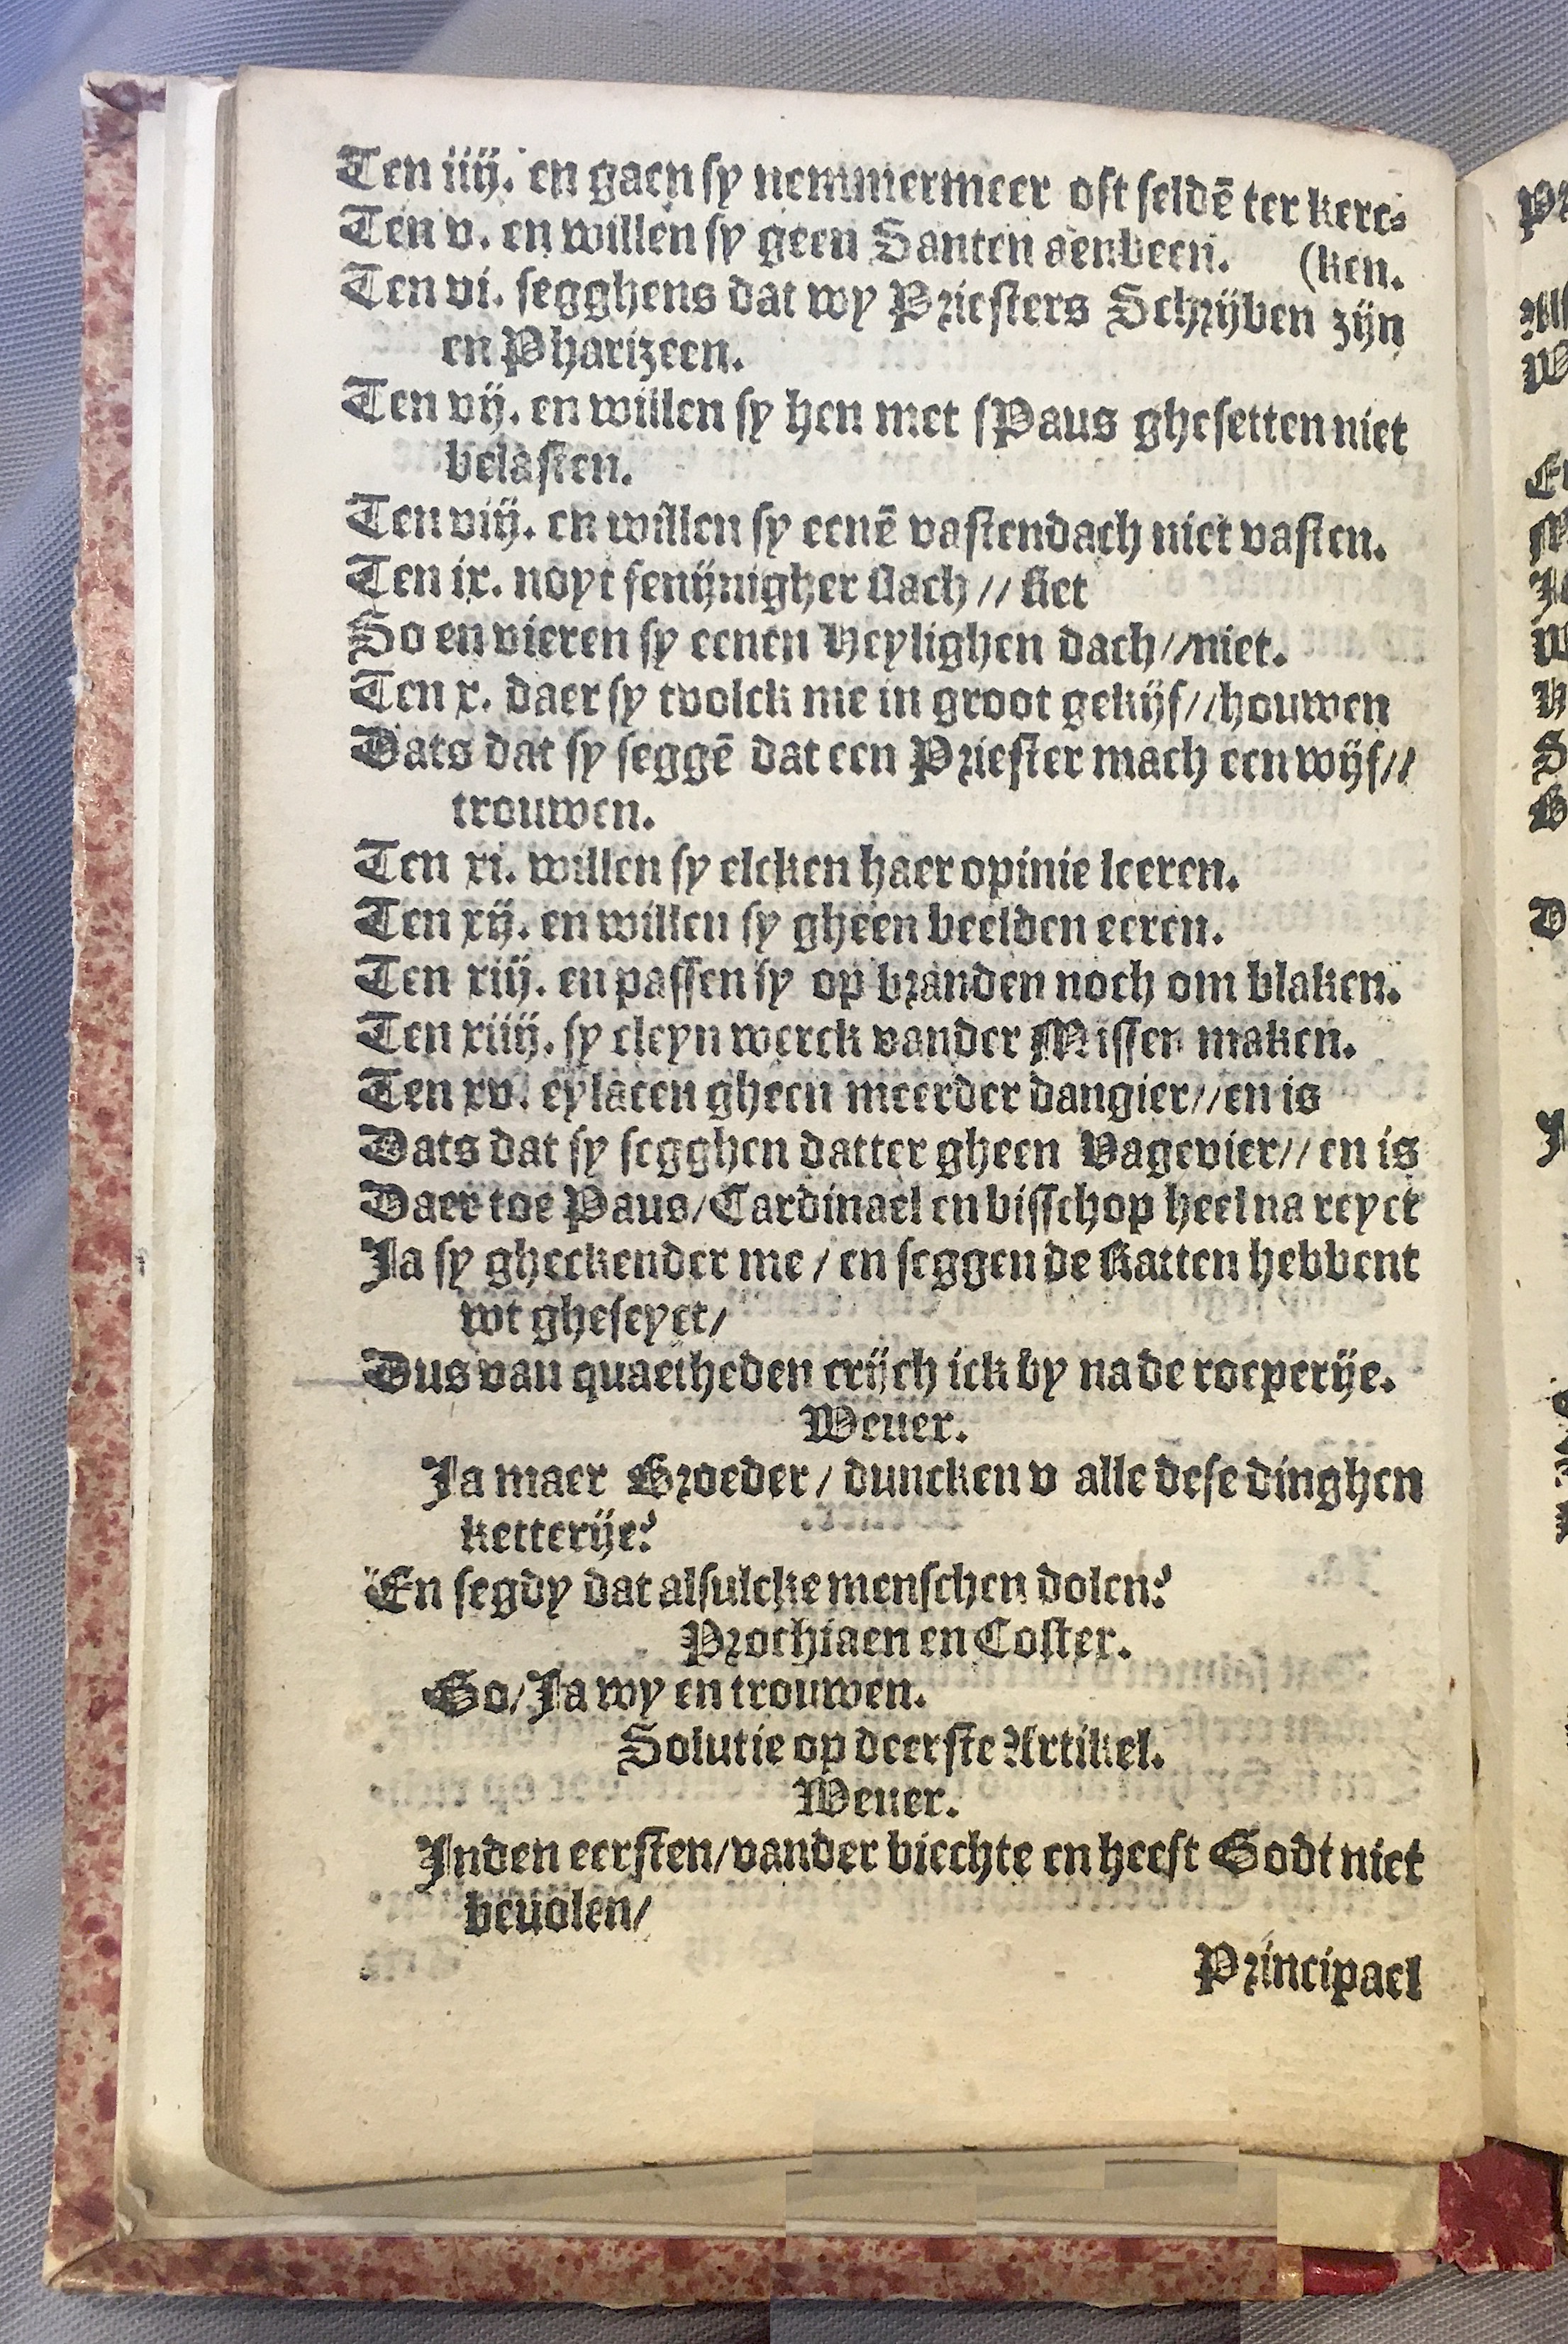 Ten iiij. en gaen sy nemmermeer oft seldē ter kerc-
Ten v. en willen sy geen Santen aenbeen. (ken.
Ten vi. segghens dat wy Priesters Schrijben zijn
en Pharizeen.
Ten vij. en willen sy hen met sPaus ghesetten niet
belasten.
Ten viij. en willen sy eenē vastendach niet vasten.
Ten ix. noyt fenijnigher slach // siet
So en vieren sy eenen Heylighen dach//niet.
Ten x. daer sy tvolck me in groot gekijf//houwen
Dats dat sy seggē dat een Priester mach een wijf//
trouwen.
Ten xi. willen sy elcken haer opinie leeren.
Ten xij. en willen sy gheen beelden eeren.
Ten xiij. en passen sy op branden noch om blaken.
Ten xiiij. sy cleyn werck vander Missen maken.
Ten xv. eylacen gheen meerder dangier//en is
Dats dat sy segghen datter gheen Vagevier// en is
Daer toe Paus/Cardinael en bisschop heel na reyct
Ja sy gheckender me / en seggen de Katten hebbent
wt gheseyct/
Dus van quaetheden crijch ick by na de roeperije.
Wever.
Ja maer Broeder / duncken v alle dese dinghen
ketterije?
En segdy dat alsulcke menschen dolen?
Prochiaen en Coster.
Go/Ja wy en trouwen.
Solutie op deerste Artikel.
Wever.
Inden eersten/vander biechte en heeft Godt niet
bevolen/
Principael